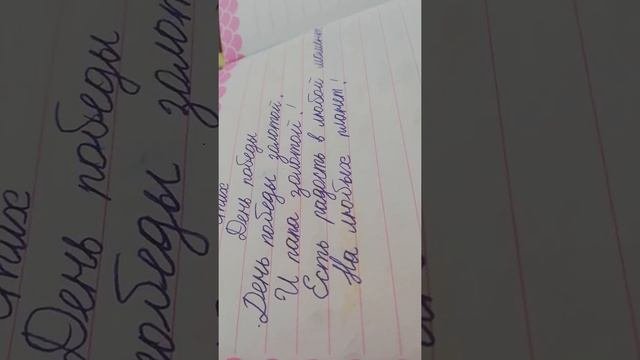 Стих
День победы
День победы золотой.
И папа золотой!
Есть радость в любой момент
На любых планет!